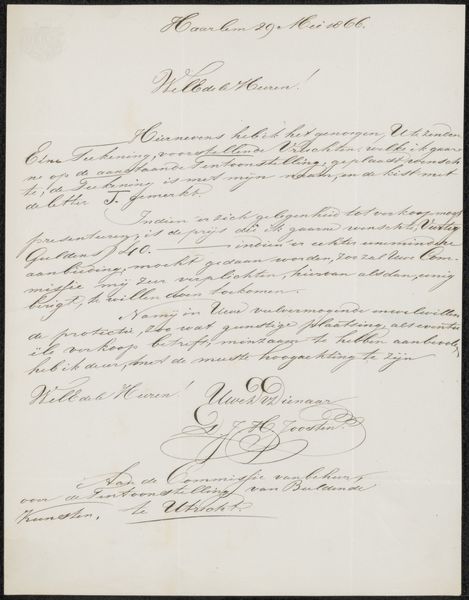 Haarlem 29 Mei 1866.
WelEdele Heeren!
Hiernevens heb ik het genoegen, U te zenden
Eene Teekening, voorstellende Vruchten, welke ik gaar-
ne op de aanstaande Tentoonstelling, geplaatst wensch-
te, de Teekening is met mijn naam, en de kist met
de letter J. gemerkt.
Indien er zich gelegenheid tot verkoop mogt
presenteren, is de prijs die ik gaarne wenschte, Veertig
Guldens ƒ 40. indien er echter eene mindere
aanbieding, mogt gedaan worden, zoo zal Uwe Com-
missie mij zeer verpligten, hiervan alsdan, eenig
berigt, te willen doen toekomen.
Na mij in Uwe veelvermogende
de protectie, zoo wat gunstige plaatsing, als eventu-
ële verkoop betreft, minzaam te hebben aanbevolen
heb ik de eer, met de meeste hoogachting te zijn
WelEdele Heeren!
UwEd Dienaar
G. J. H. Joosten
Aan de Commissie van beheer,
voor de Tentoonstelling van Beeldende
Kunsten, te Utrecht.